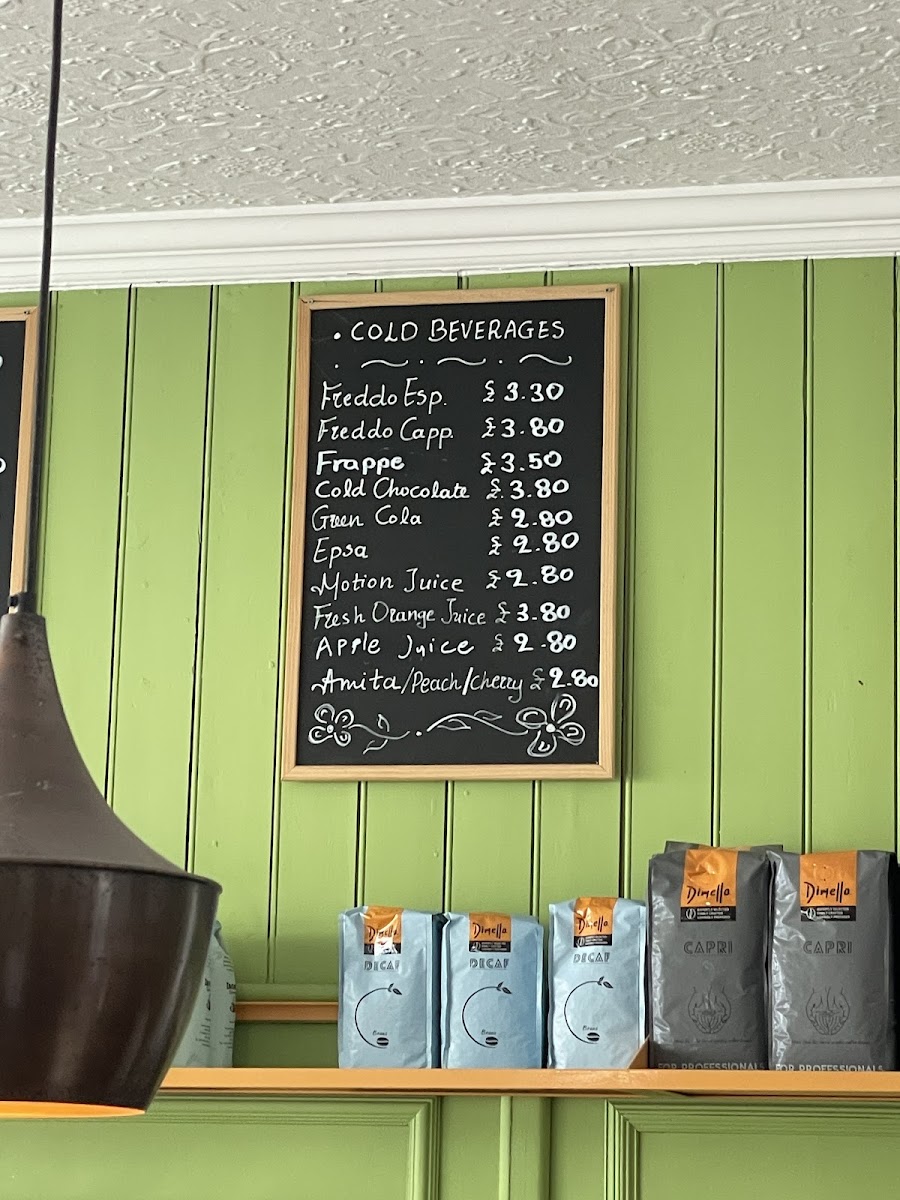 . COLD BEVERAGES
Freddo Esp. £3.30
Freddo Capp. £3.80
Frappe £3.50
Cold Chocolate £3.80
Green Cola £2.80
Epsa £2.80
Motion Juice £2.80
Fresh Orange Juice £3.80
Apple Juice £2.80
Amita/Peach/Cherry £2.80
Dimello
DECAF
Dimello
DECAF
Dimello
DECAF
Dimello
CAPRI
FOR PROFESSIONALS
Dimello
CAPRI
FOR PROFESSIONALS